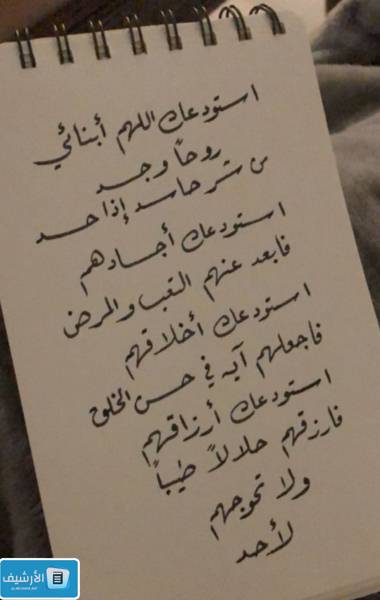 استودعك اللهم أبنائي
روحاً وجسد
من شر حاسد إذا حسد
استودعك أجسادهم
فابعد عنهم التعب والمرض
استودعك أخلاقهم
فاجعلهم آيه في حسن الخلق
استودعك أرزاقهم
فارزقهم حلالاً طيباً
ولا تحوجهم
لأحد
الأرشيف